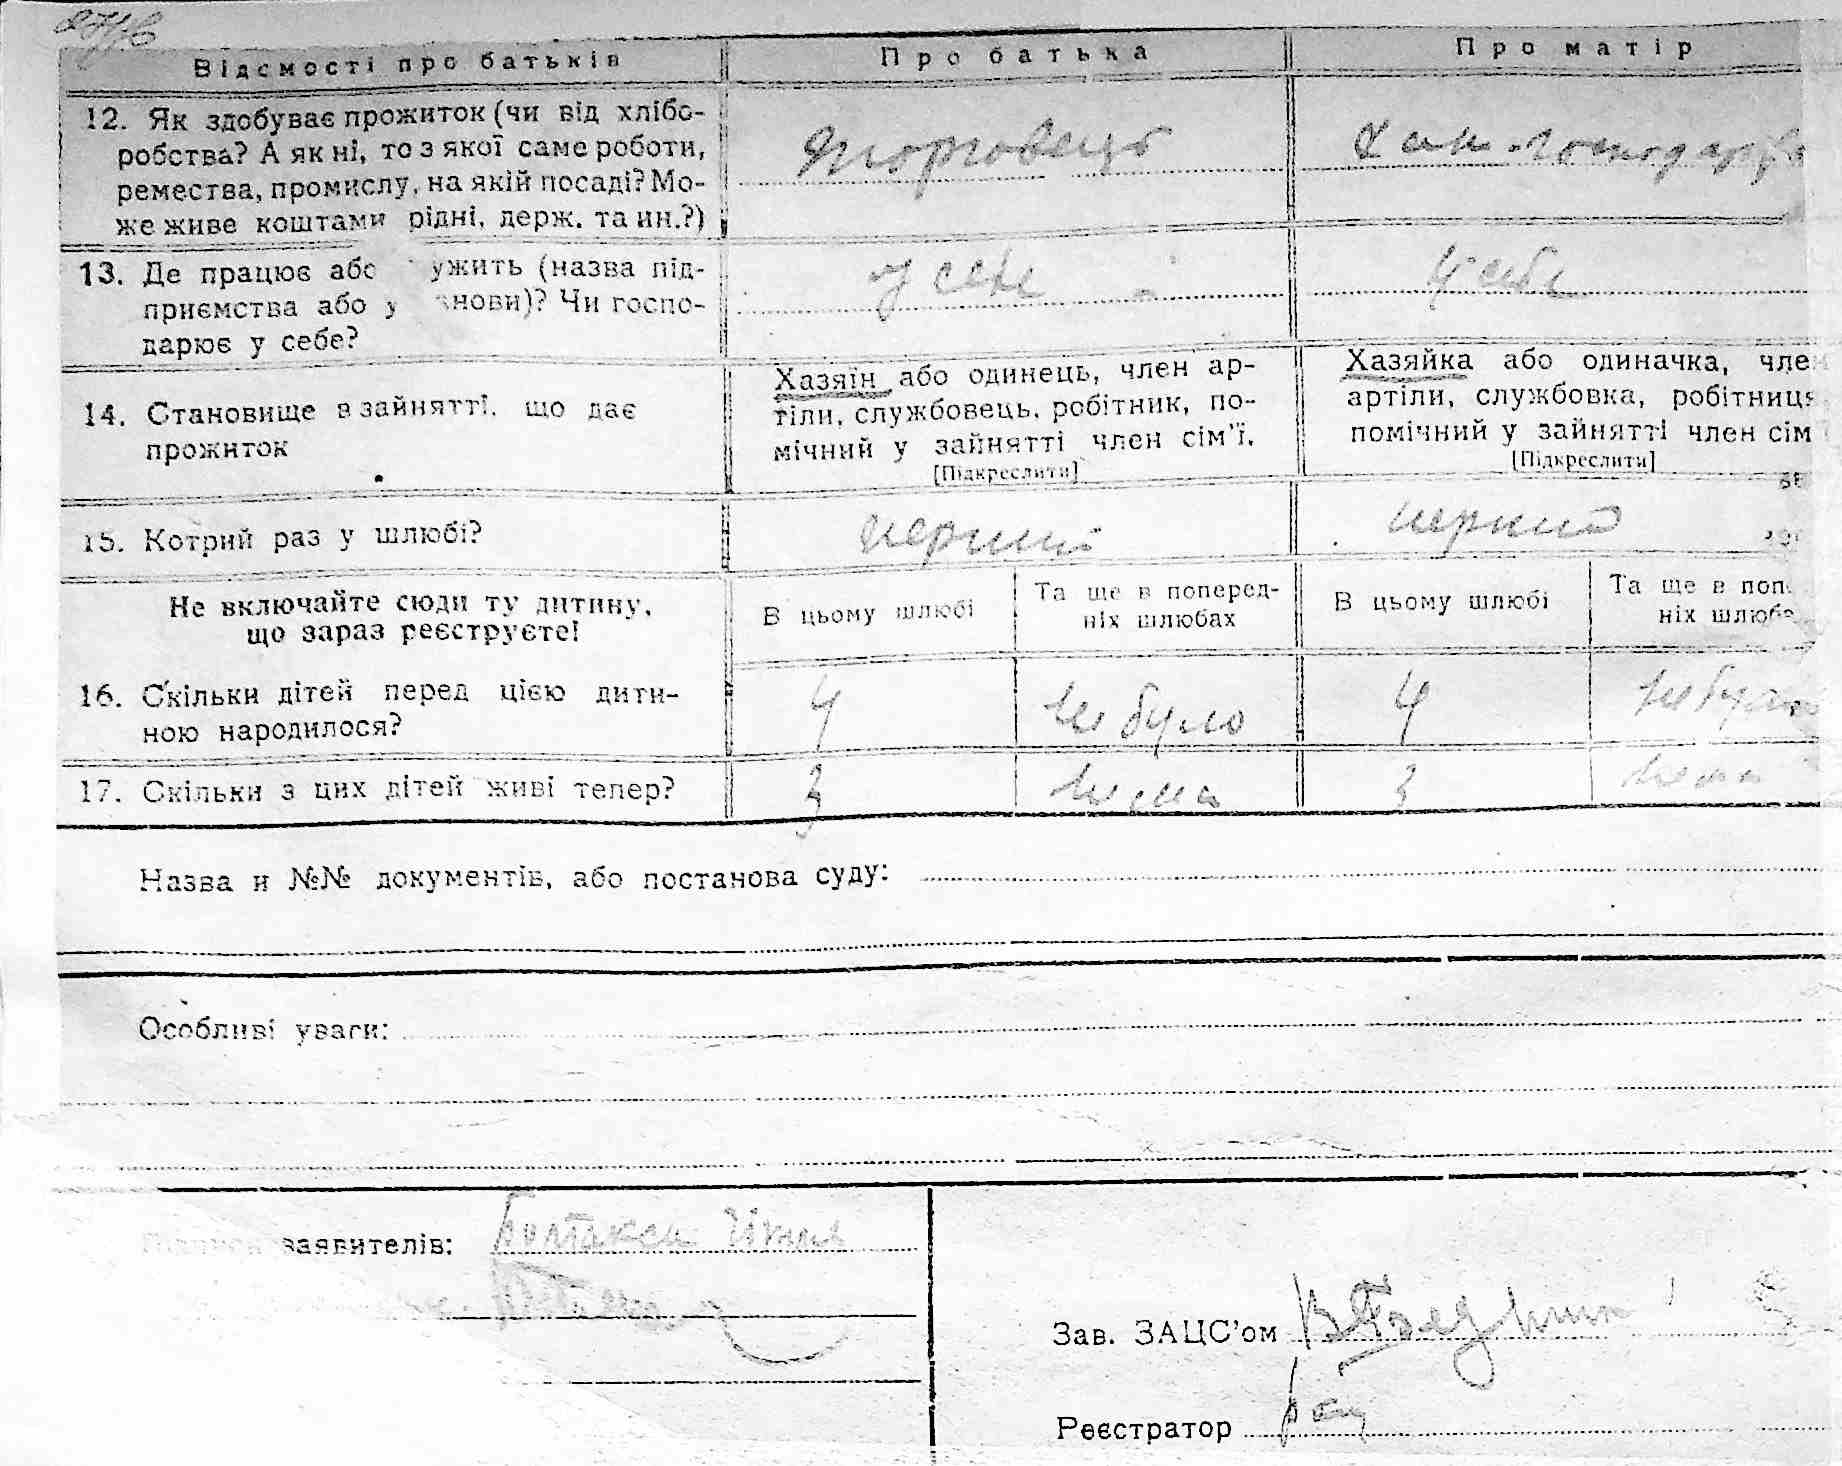 Відомості про батьків
Про батька
Про матір
12. Як здобуває прожиток (чи від хлібо-
робства? А як ні, то з якої саме роботи,
ремества, промислу, на якій посаді? Мо-
же живе коштами рідні, держ. та ин.?)
торговець
13. Де працює або ужить (назва під-
приємства або у нови)? Чи госпо-
дарює у себе?
у себе
у себе
14. Становище в зайнятті, що дає
прожиток
Хазяїн або одинець, член ар-
тіли, службовець, робітник, по-
мічний у зайнятті член сім'ї.
[Підкреслити]
Хазяйка або одиначка, член
артіли, службовка, робітниця
помічний у зайнятті член сім
[Підкреслити]
15. Котрий раз у шлюбі?
перший
перший
Не включайте сюди ту дитину,
що зараз реєструєте!
В цьому шлюбі
Та ще в поперед-
ніх шлюбах
В цьому шлюбі
Та ще в поп
ніх шлюба
16. Скільки дітей перед цією дити-
ною народилося?
4
не було
4
не було
17. Скільки з цих дітей живі тепер?
3
нема
3
нема
Назва и №№ документів, або постанова суду:
Особливі уваги:
заявителів:
Зав. ЗАЦС'ом
Реєстратор